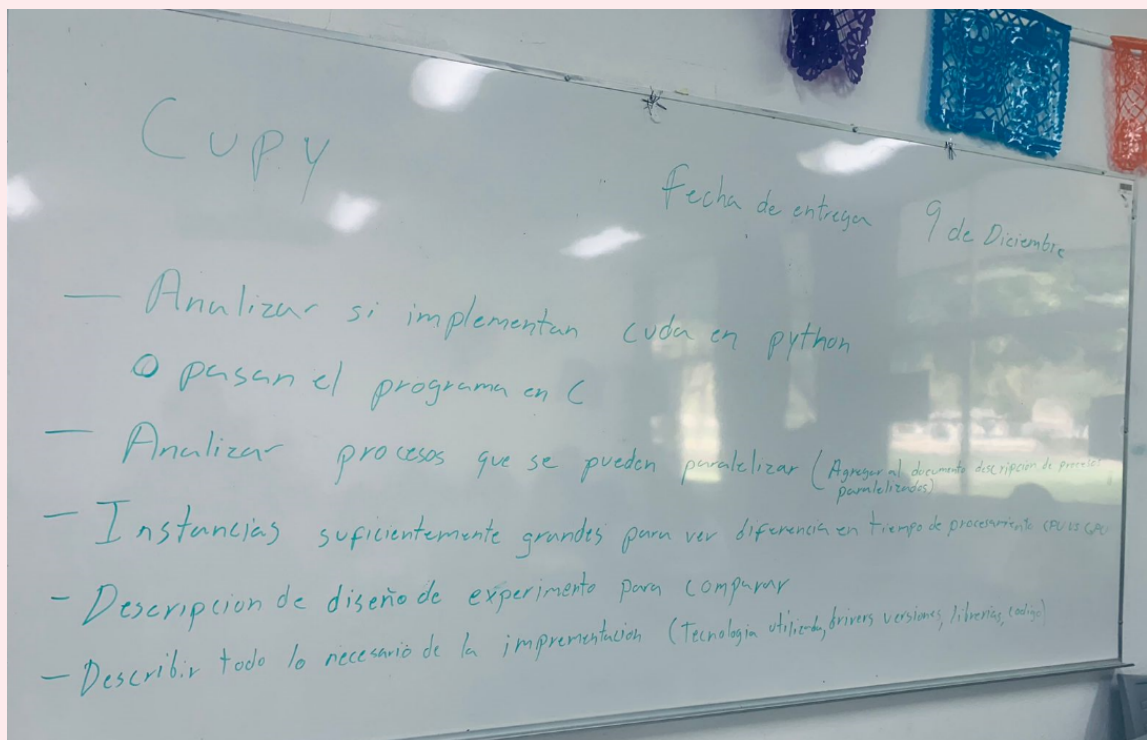 Cupy
Fecha de entrega 9 de Diciembre
— Analizar si implementan cuda en python
O pasan el programa en C
— Analizar procesos que se pueden paralelizar (Agregar al documento descripción de procesos
paralelizados)
— Instancias suficientemente grandes para ver diferencia en tiempo de procesamiento CPU vs GPU
— Descripcion de diseño de experimento para comparar
— Describir todo lo necesario de la imprementación (Tecnologia utilizada, drivers versiones, librerías, codigo)